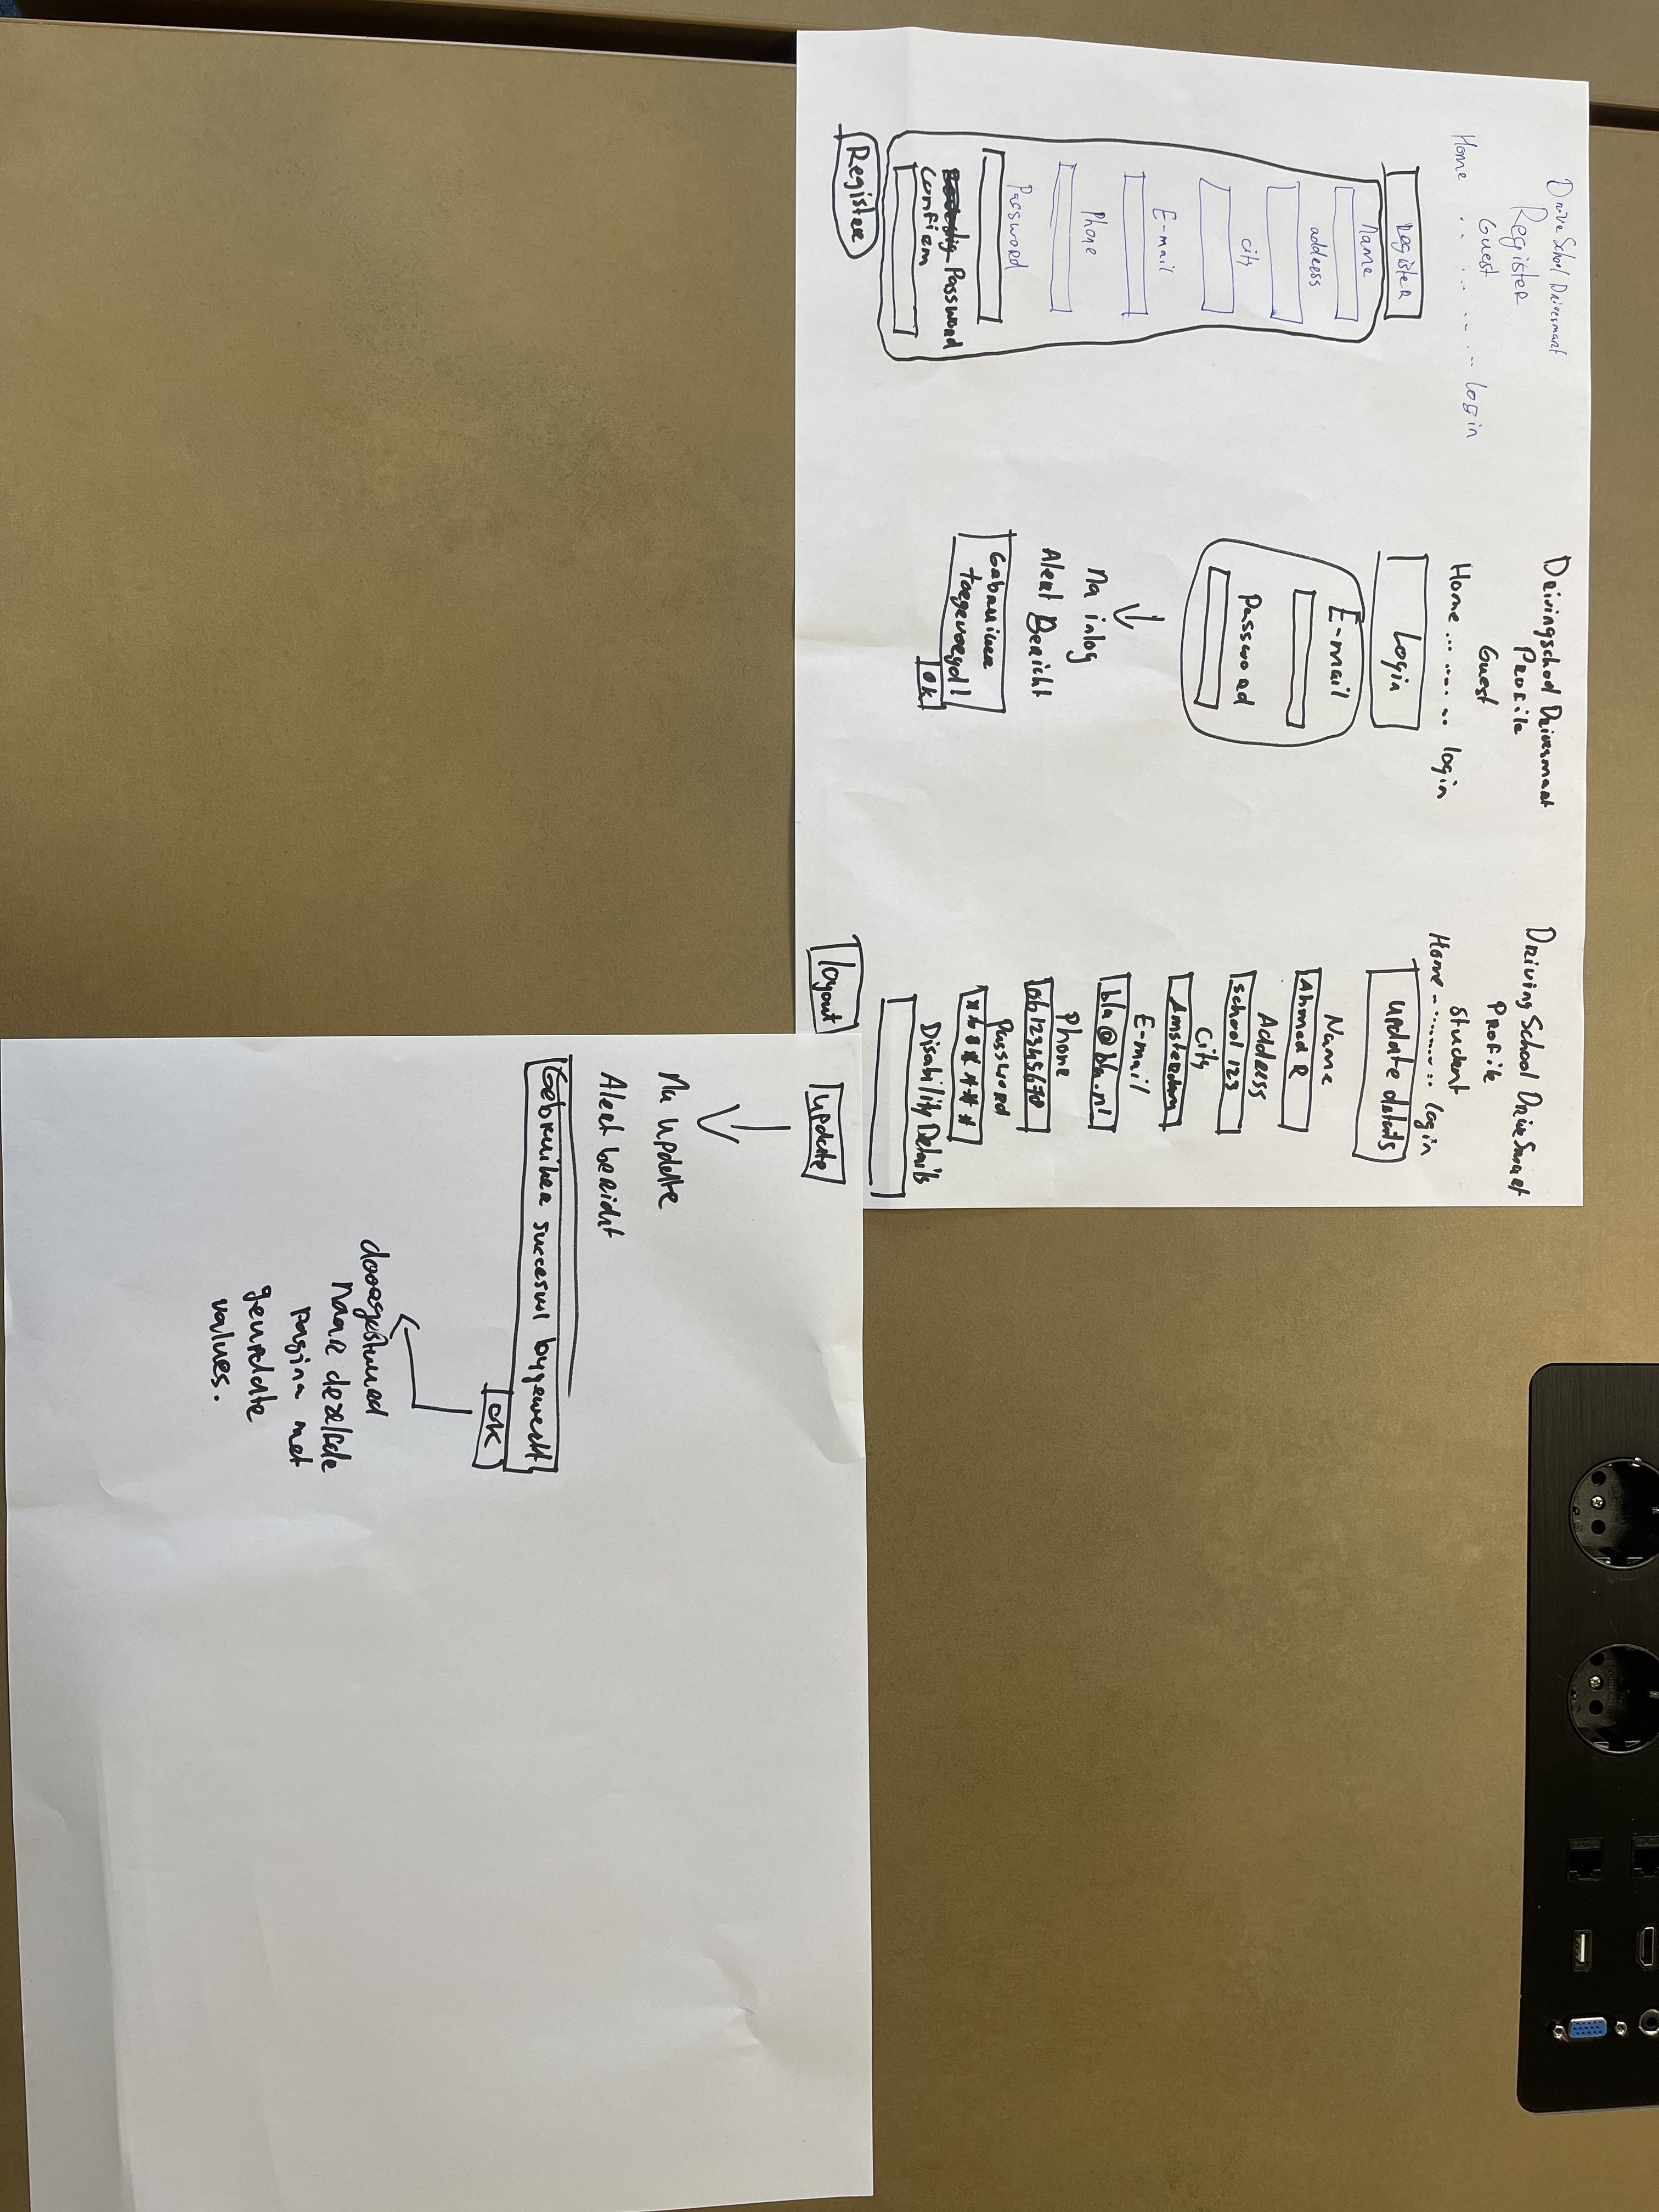 Drive School Drivesmart
Register
Guest
Home .. .. .. ... login
Register
Name
address
city
E-mail
Phone
Password
Password
Confirm
Register
Drivingschool Drivesmart
Profile
Guest
Home ... .... .. login
Login
E-mail
Password
Na inlog
Alert Bericht
Gebruiker
toegevoegd!
OK
Driving School DriveSmart
Profile
Student
Home .......... login
update details
Name
Ahmed R
Address
school 123
City
Amsterdam
E-mail
bla@bla.nl
Phone
0612345678
Password
*******
Disability Details
logout
update
Na update
Alert bericht
Gebruiker succesvol bygewerkt
OK
doorgestuurd
naar dezelfde
pagina met
geupdate
values.